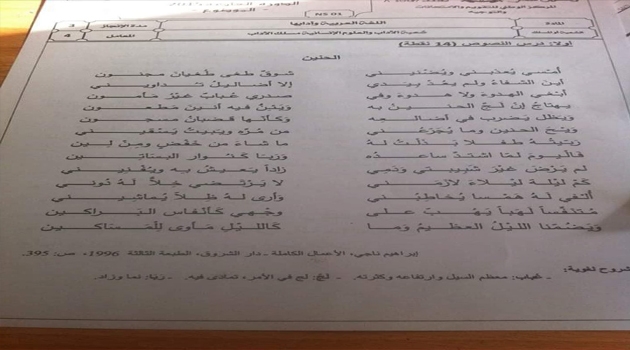 NS 01
المادة اللغة العربية وآدابها مدة الإنجاز 3
شعبة الآداب والعلوم الإنسانية مسلك الآداب المعامل 4
أولا: درس النصوص (14 نقطة)
الحنين
أمسى يعذبني ويضنيني شوق طغى طغيان مجنون
أين الشفاء ولم يعد بيدي إلا أضاليل تداويني
أبغي الهدوء ولا هدوء وفي صدري عباب غير مأمون
يهتاج إن لج الحنين به ويئن فيه أنين مطعون
ويظل يضرب في أضالعه وكأنها قضبان مسجون
ويح الحنين وما يجرعني من مره ويبيت يسقيني
ربيته طفلا بذلت له ما شاء من خفض ومن لين
فاليوم لما اشتد ساعده وربا كنوار البساتين
لم يرض غير شبيبتي ودمي زادا يعيش به ويفنيني
كم ليلة ليلاء لازمني لا يرتضي خلا له دوني
ألفي له همسا يخاطبني وأرى له ظلا يماشيني
متنفسا لهبا يهب على وجهي كأنفاس البراكين
ويضمنا الليل العظيم وما كالليل مأوى للمساكين
إبراهيم ناجي، الأعمال الكاملة - دار الشروق، الطبعة الثالثة 1996، ص: 395.
شروح لغوية:
- عباب: معظم السيل وارتفاعه وكثرته. - لج: لج في الأمر، تمادى فيه. - ربا: نما وزاد.